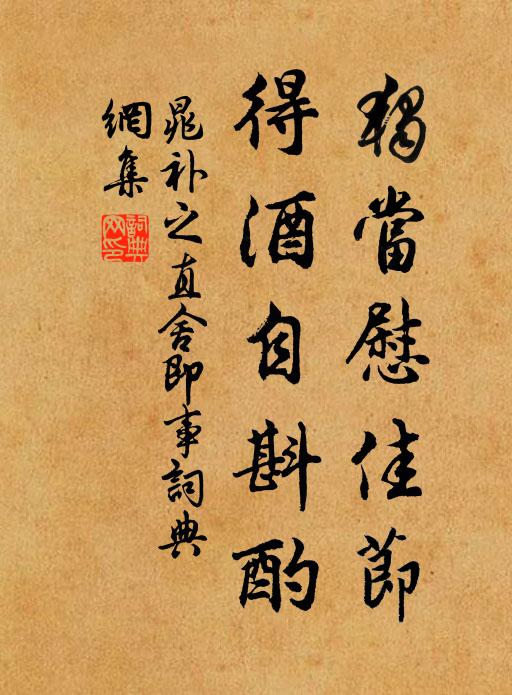 獨當慰佳節
得酒自斟酌
晁补之直舍即事詞典
網集
詞典
网印